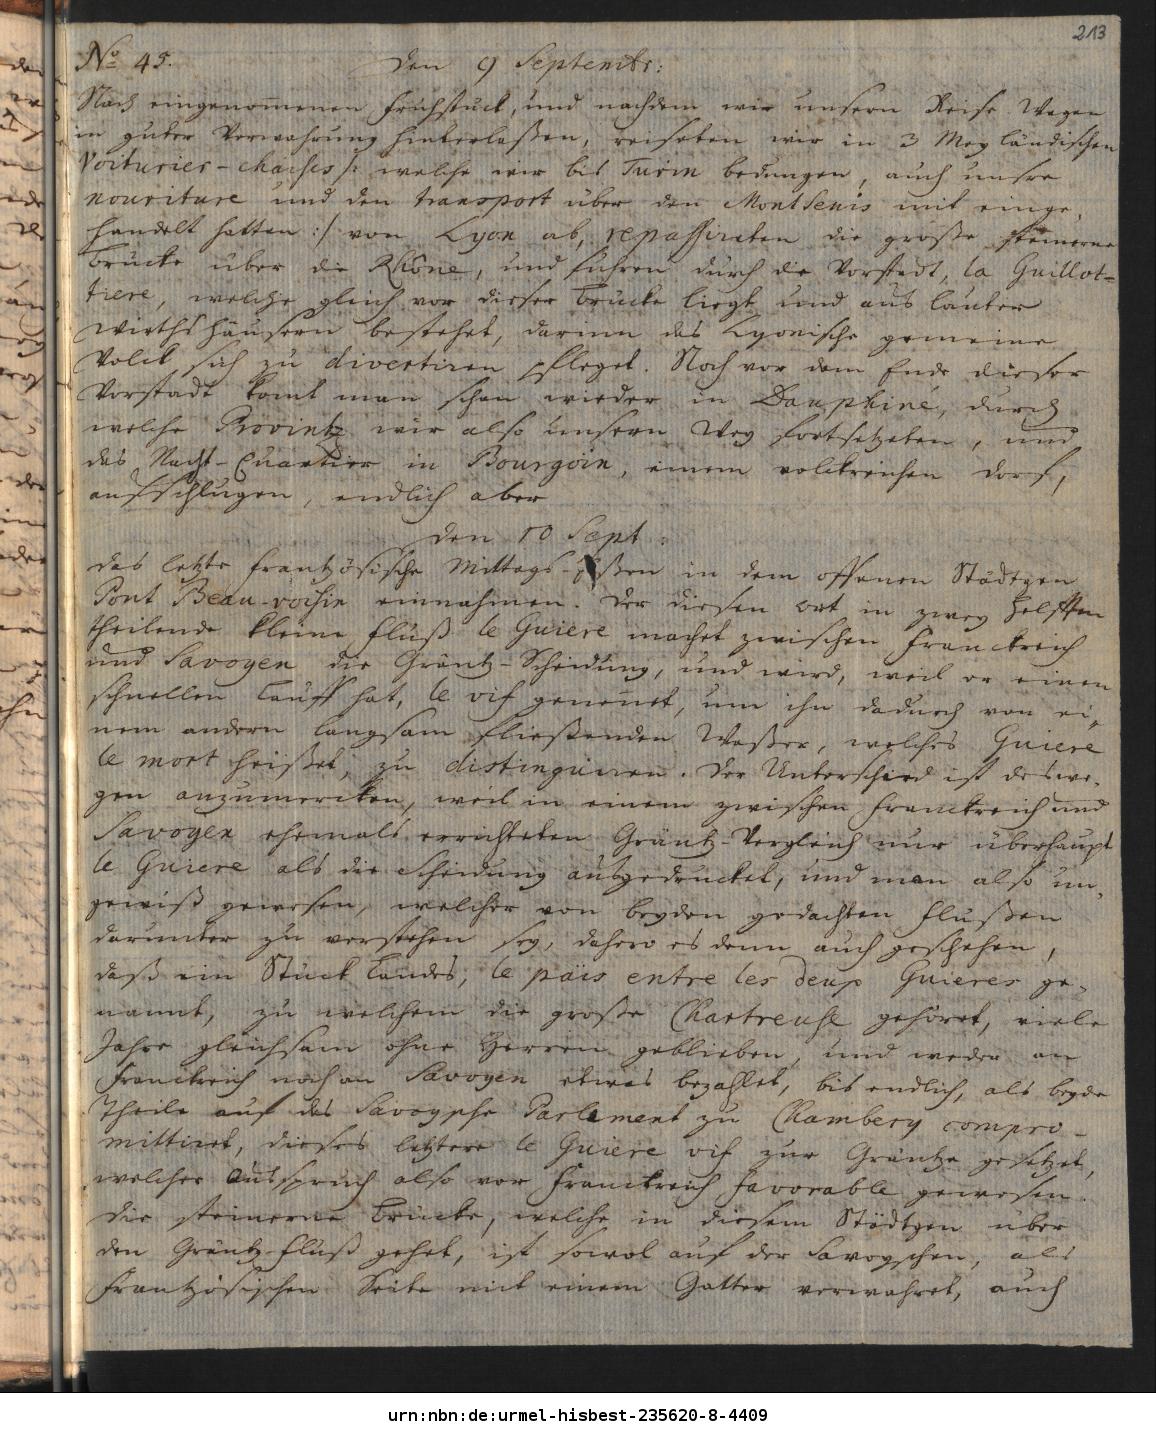 213
No 45.
den 9 Septembr:
Nach eingenom̅enen Frühstuck, und nachdem wir unsern Reise-Wagen
in guter Verwahrung hinterlaßen, reiseten wir in 3 Meyländischen
Voiturier-chaises /: welche wir bis Turin bedungen, auch unsre
nouriture und den transport über den MontSenis mit einge-
handelt hatten :/ von Lyon ab, repassireten die große steinerne
Brücke über die Rhône, und fuhren durch die Vorstadt, la Guillot-
tiere, welche gleich vor dieser Brücke liegt und aus lauter
Wirthshäusern bestehet, darinn das Lyonische gemeine
Volck sich zu divertiren pfleget. Noch vor dem Ende dieser
Vorstadt komt man schon wieder in Dauphiné, durch
welche Provintz wir also unsern Weg fortsetzeten, und
das Nacht-Quartier in Bourgoin, einem volckreichen Dorf,
aufschlugen, endlich aber
den 10 Sept:
das letzte Frantzösische Mittags-Eßen in dem offenen Städtgen
Pont Beau-voisin einnahmen. Der diesen Ort in zwey Helfften
theilende kleine Fluß le Guiere machet zwischen Franckreich
und Savoyen die Gräntz-Scheidung, und wird, weil er einen
schnellen Lauff hat, le vif genen̅et, um ihn dadurch von ei-
nem andern langsam fließenden Waßer, welches Guiere
le mort heißet, zu distinguiren. Der Unterschied ist deswe-
gen anzumercken, weil in einem zwischen Franckreich und
Savoyen ehemals errichteten Gräntz-Vergleich nur überhaupt
le Guiere als die Scheidung ausgedrucket, und man also un-
gewiß gewesen, welcher von beyden gedachten Flußen
darunter zu verstehen sey, dahero es denn auch geschehen,
daß ein Stück Landes, le païs entre les deux Guieres ge-
nannt, zu welchem die große Chartreuse gehöret, viele
Jahre gleichsam ohne Herren geblieben, und weder an
Franckreich noch an Savoyen etwas bezahlet, bis endlich, als beyde
Theile auf das Savoysche Parlement zu Chambery compro-
mittiret, dieses letztere le Guiere vif zur Gräntze gesetzet,
welcher Ausspruch also vor Franckreich favorable gewesen.
Die steinerne Brücke, welche in diesem Städtgen über
den Gräntz-Fluß gehet, ist sowol auf der Savoyschen, als
Frantzösischen Seite mit einem Gatter verwahret, auch
urn:nbn:de:urmel-hisbest-235620-8-4409